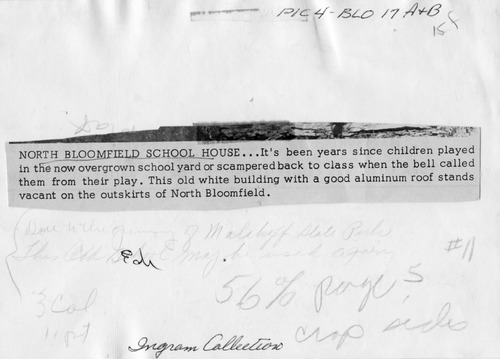 PIC 4-BLO 17 A+B
NORTH BLOOMFIELD SCHOOL HOUSE...It's been years since children played
in the now overgrown school yard or scampered back to class when the bell called
them from their play. This old white building with a good aluminum roof stands
vacant on the outskirts of North Bloomfield.
of Malakoff State Park
This Old may be used again
#11
56% page 5
3 Col
crop sides
Ingram Collection